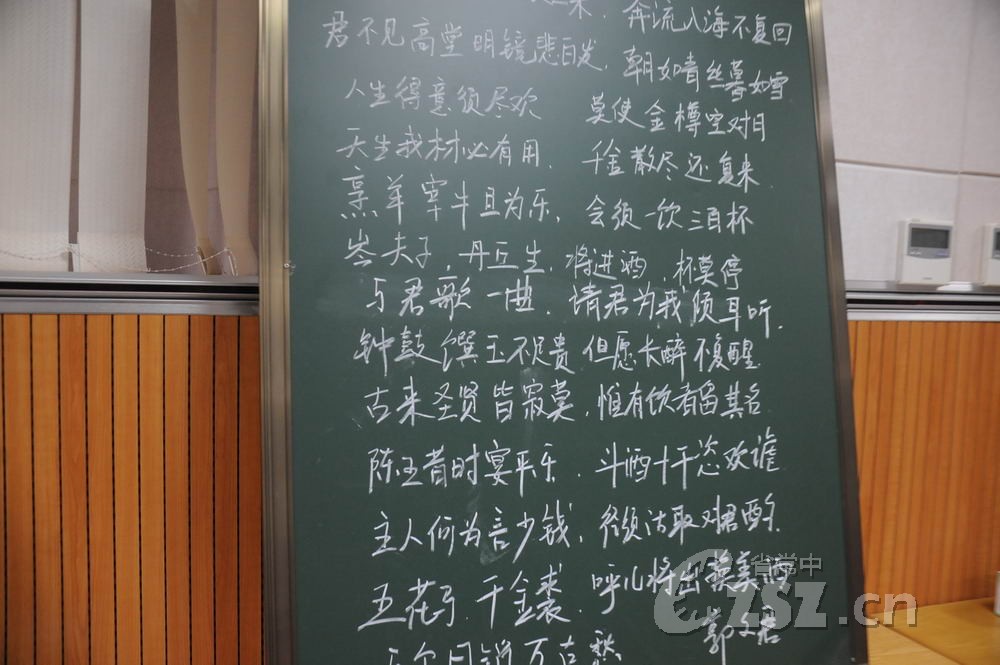 来，奔流入海不复回
君不见高堂明镜悲白发，朝如青丝暮如雪
人生得意须尽欢 莫使金樽空对月
天生我材必有用，千金散尽还复来．
烹羊宰牛且为乐，会须一饮三百杯
岑夫子，丹丘生，将进酒，杯莫停
与君歌一曲，请君为我倾耳听．
钟鼓馔玉不足贵 但愿长醉不复醒
古来圣贤皆寂寞，惟有饮者留其名
陈王昔时宴平乐，斗酒十千恣欢谑
主人何为言少钱，径须沽取对君酌．
五花马，千金裘，呼儿将出换美酒
与尔同销万古愁
郭子君
省常中
CZSZ.cn